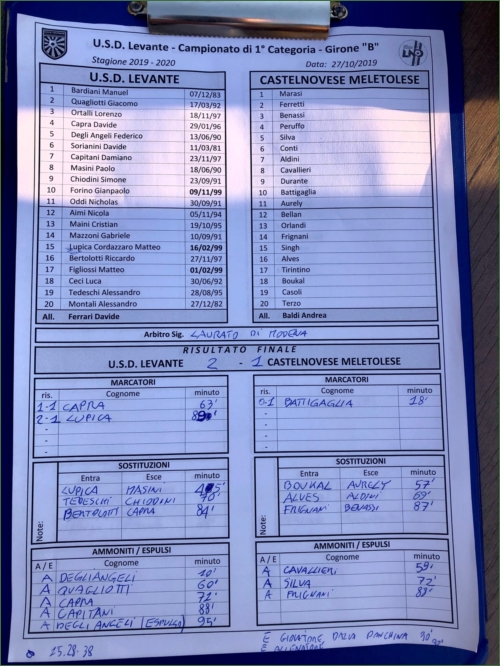 U.S.D. Levante - Campionato di 1° Categoria - Girone "B"
Stagione 2019 - 2020 Data: 27/10/2019
U.S.D. LEVANTE
1 Bardiani Manuel 07/12/83
2 Quagliotti Giacomo 17/03/92
3 Ortalli Lorenzo 18/11/97
4 Capra Davide 29/01/96
5 Degli Angeli Federico 13/06/90
6 Sorianini Davide 11/03/81
7 Capitani Damiano 23/11/97
8 Masini Paolo 18/06/90
9 Chiodini Simone 23/09/91
10 Forino Gianpaolo 09/11/99
11 Oddi Nicholas 30/09/91
12 Aimi Nicola 05/11/94
13 Maini Cristian 19/10/95
14 Mazzoni Gabriele 10/09/91
15 Lupica Cordazzaro Matteo 16/02/99
16 Bertolotti Riccardo 27/11/97
17 Figliossi Matteo 01/02/99
18 Ceci Luca 30/06/92
19 Tedeschi Alessandro 28/08/95
20 Montali Alessandro 27/12/82
All. Ferrari Davide
CASTELNOVESE MELETOLESE
1 Marasi
2 Ferretti
3 Benassi
4 Peruffo
5 Silva
6 Conti
7 Aldini
8 Cavallieri
9 Durante
10 Battigaglia
11 Aurely
12 Bellan
13 Orlandi
14 Frignani
15 Singh
16 Alves
17 Tirintino
18 Boukal
19 Casoli
20 Terzo
All. Baldi Andrea
Arbitro Sig. LAURATO DI MODENA
RISULTATO FINALE
U.S.D. LEVANTE 2 - 1 CASTELNOVESE MELETOLESE
MARCATORI
ris. Cognome minuto
1-1 CAPRA 63'
2-1 LUPICA
MARCATORI
ris. Cognome minuto
0-1 BATTIGAGLIA 18'
SOSTITUZIONI
Entra Esce minuto
LUPICA MASINI
TEDESCHI CHIODINI 70'
BERTOLOTTI CAPRA 84'
Note:
SOSTITUZIONI
Entra Esce minuto
BOUKAL AURELY 57'
ALVES ALDINI 69'
FRIGNANI BENASSI 87'
Note:
AMMONITI / ESPULSI
A / E Cognome minuto
A DEGLIANGELI 10'
A QUAGLIOTTI 60'
A CAPRA 71'
A CAPITANI 88'
A DEGLI ANGELI (ESPULSO) 95'
AMMONITI / ESPULSI
A / E Cognome minuto
A CAVALLIERI 59'
A SILVA 72'
A FRIGNANI 88'
E GIOCATORE DALLA PANCHINA 90'
15.28.38